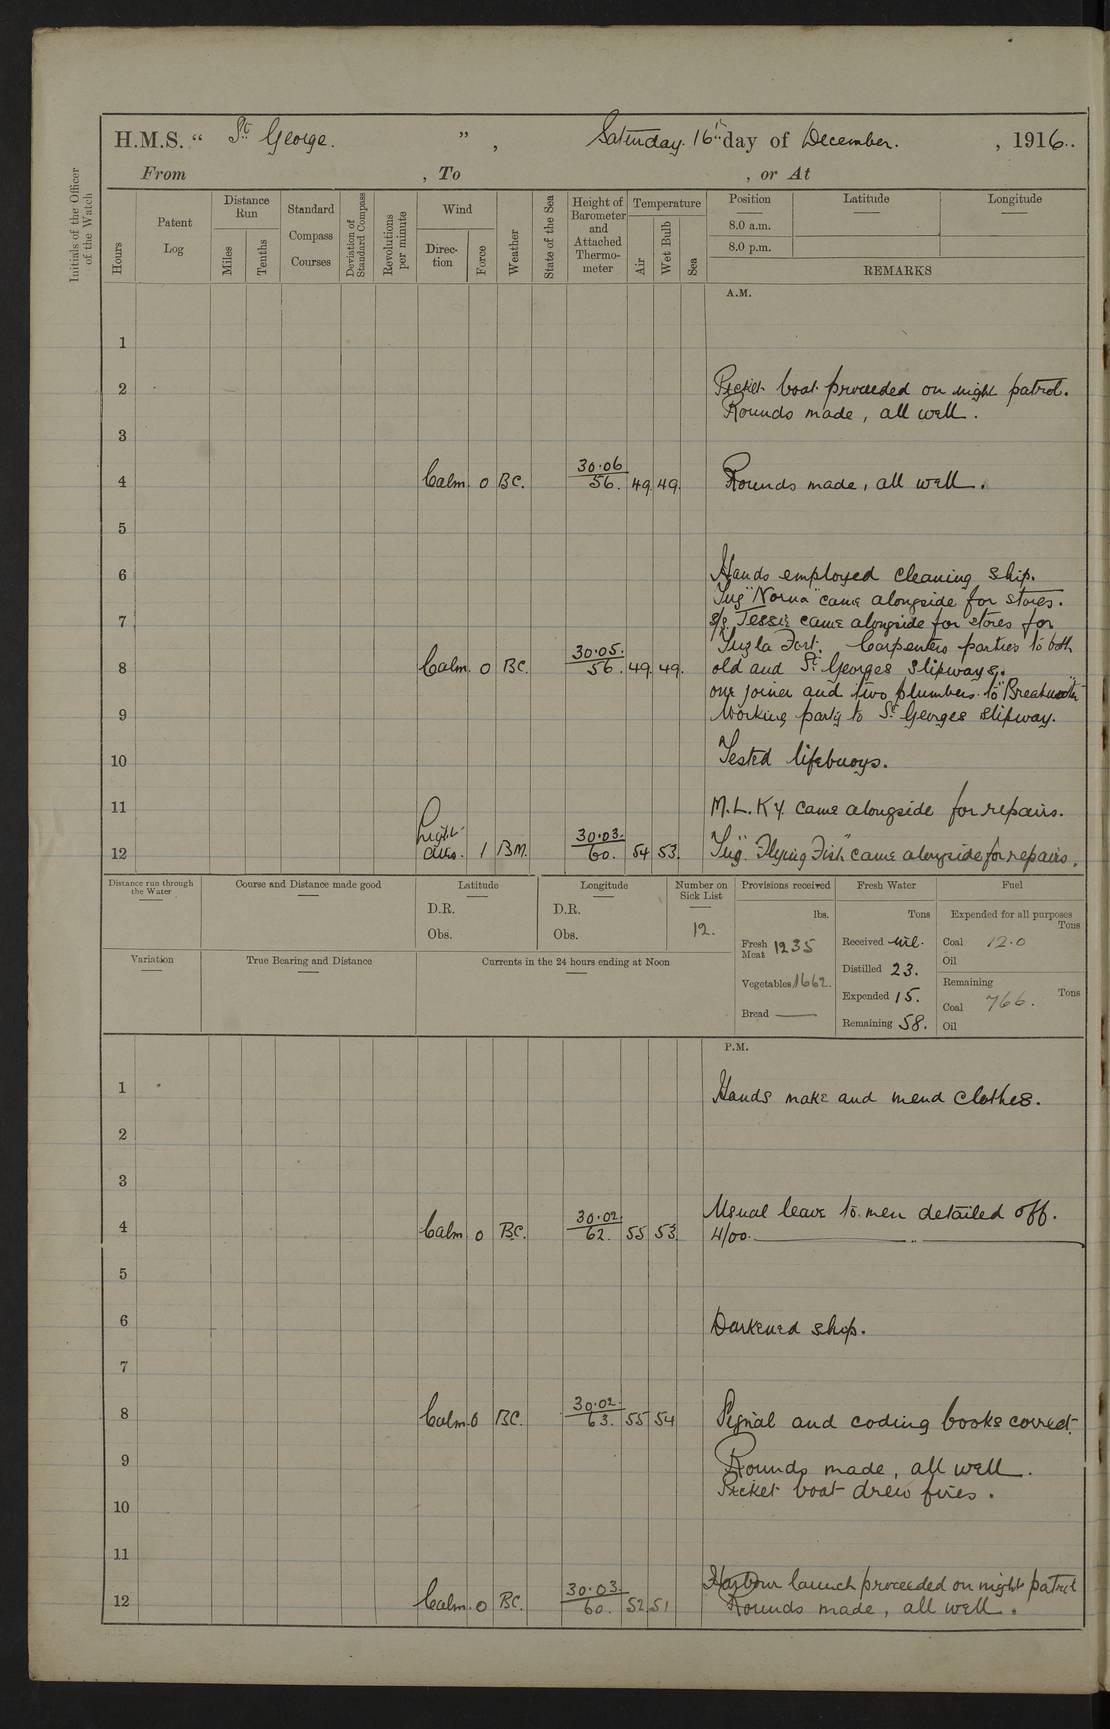 H.M.S. “ St George. ”, Saturday. 16th day of December. , 1916..
From , To , or At
Initials of the Officer of the Watch
Hours
Patent Log
Distance Run
Miles
Tenths
Standard Compass Courses
Deviation of Standard Compass
Revolutions per minute
Wind
Direc-tion
Force
Weather
State of the Sea
Height of Barometer and Attached Thermo-meter
Temperature
Air
Wet Bulb
Sea
Position Latitude Longitude
8.0 a.m.
8.0 p.m.
REMARKS
A.M.
1
2 Picket boat proceeded on night patrol.
Rounds made, all well.
3
4 Calm. 0 BC. 30.06 56. 49. 49. Rounds made, all well.
5
6 Hands employed cleaning ship.
Tug "Norna" came alongside for stores.
7 S/S. Jessie came alongside for stores for
Tuzla Fort. Carpenters parties to both
8 Calm. 0 BC. 30.05. 56. 49. 49. old and St Georges slipways.
one joiner and two plumbers to "
9 Working party to St Georges slipway.
10 Tested lifebuoys.
11 M.L. K4. came alongside for repairs.
12 Light airs. 1 BM. 30.03. 60. 54 53. Tug. "Flying Fish" came alongside for repairs.
Distance run through the Water
Course and Distance made good
Latitude
D.R.
Obs.
Longitude
D.R.
Obs.
Number on Sick List
12.
Provisions received
lbs.
Fresh Meat 1235
Vegetables 1662.
Bread ——
Fresh Water
Tons
Received nil.
Distilled 23.
Expended 15.
Remaining 58.
Fuel
Expended for all purposes
Tons
Coal 12.0
Oil
Remaining
Tons
Coal 766.
Oil
Variation
True Bearing and Distance
Currents in the 24 hours ending at Noon
P.M.
1 Hands make and mend clothes.
2
3
4 Calm 0 BC. 30.02. 62. 55 53. Usual leave to men detailed off.
4/00. ——
5
6 Darkened ship.
7
8 Calm. 0 BC. 30.02. 63. 55 54 Signal and coding books correct.
9 Rounds made, all well.
Picket boat drew fires.
10
11
12 Calm. 0 BC. 30.03. 60. 52 51 Harbour launch proceeded on night patrol
Rounds made, all well.